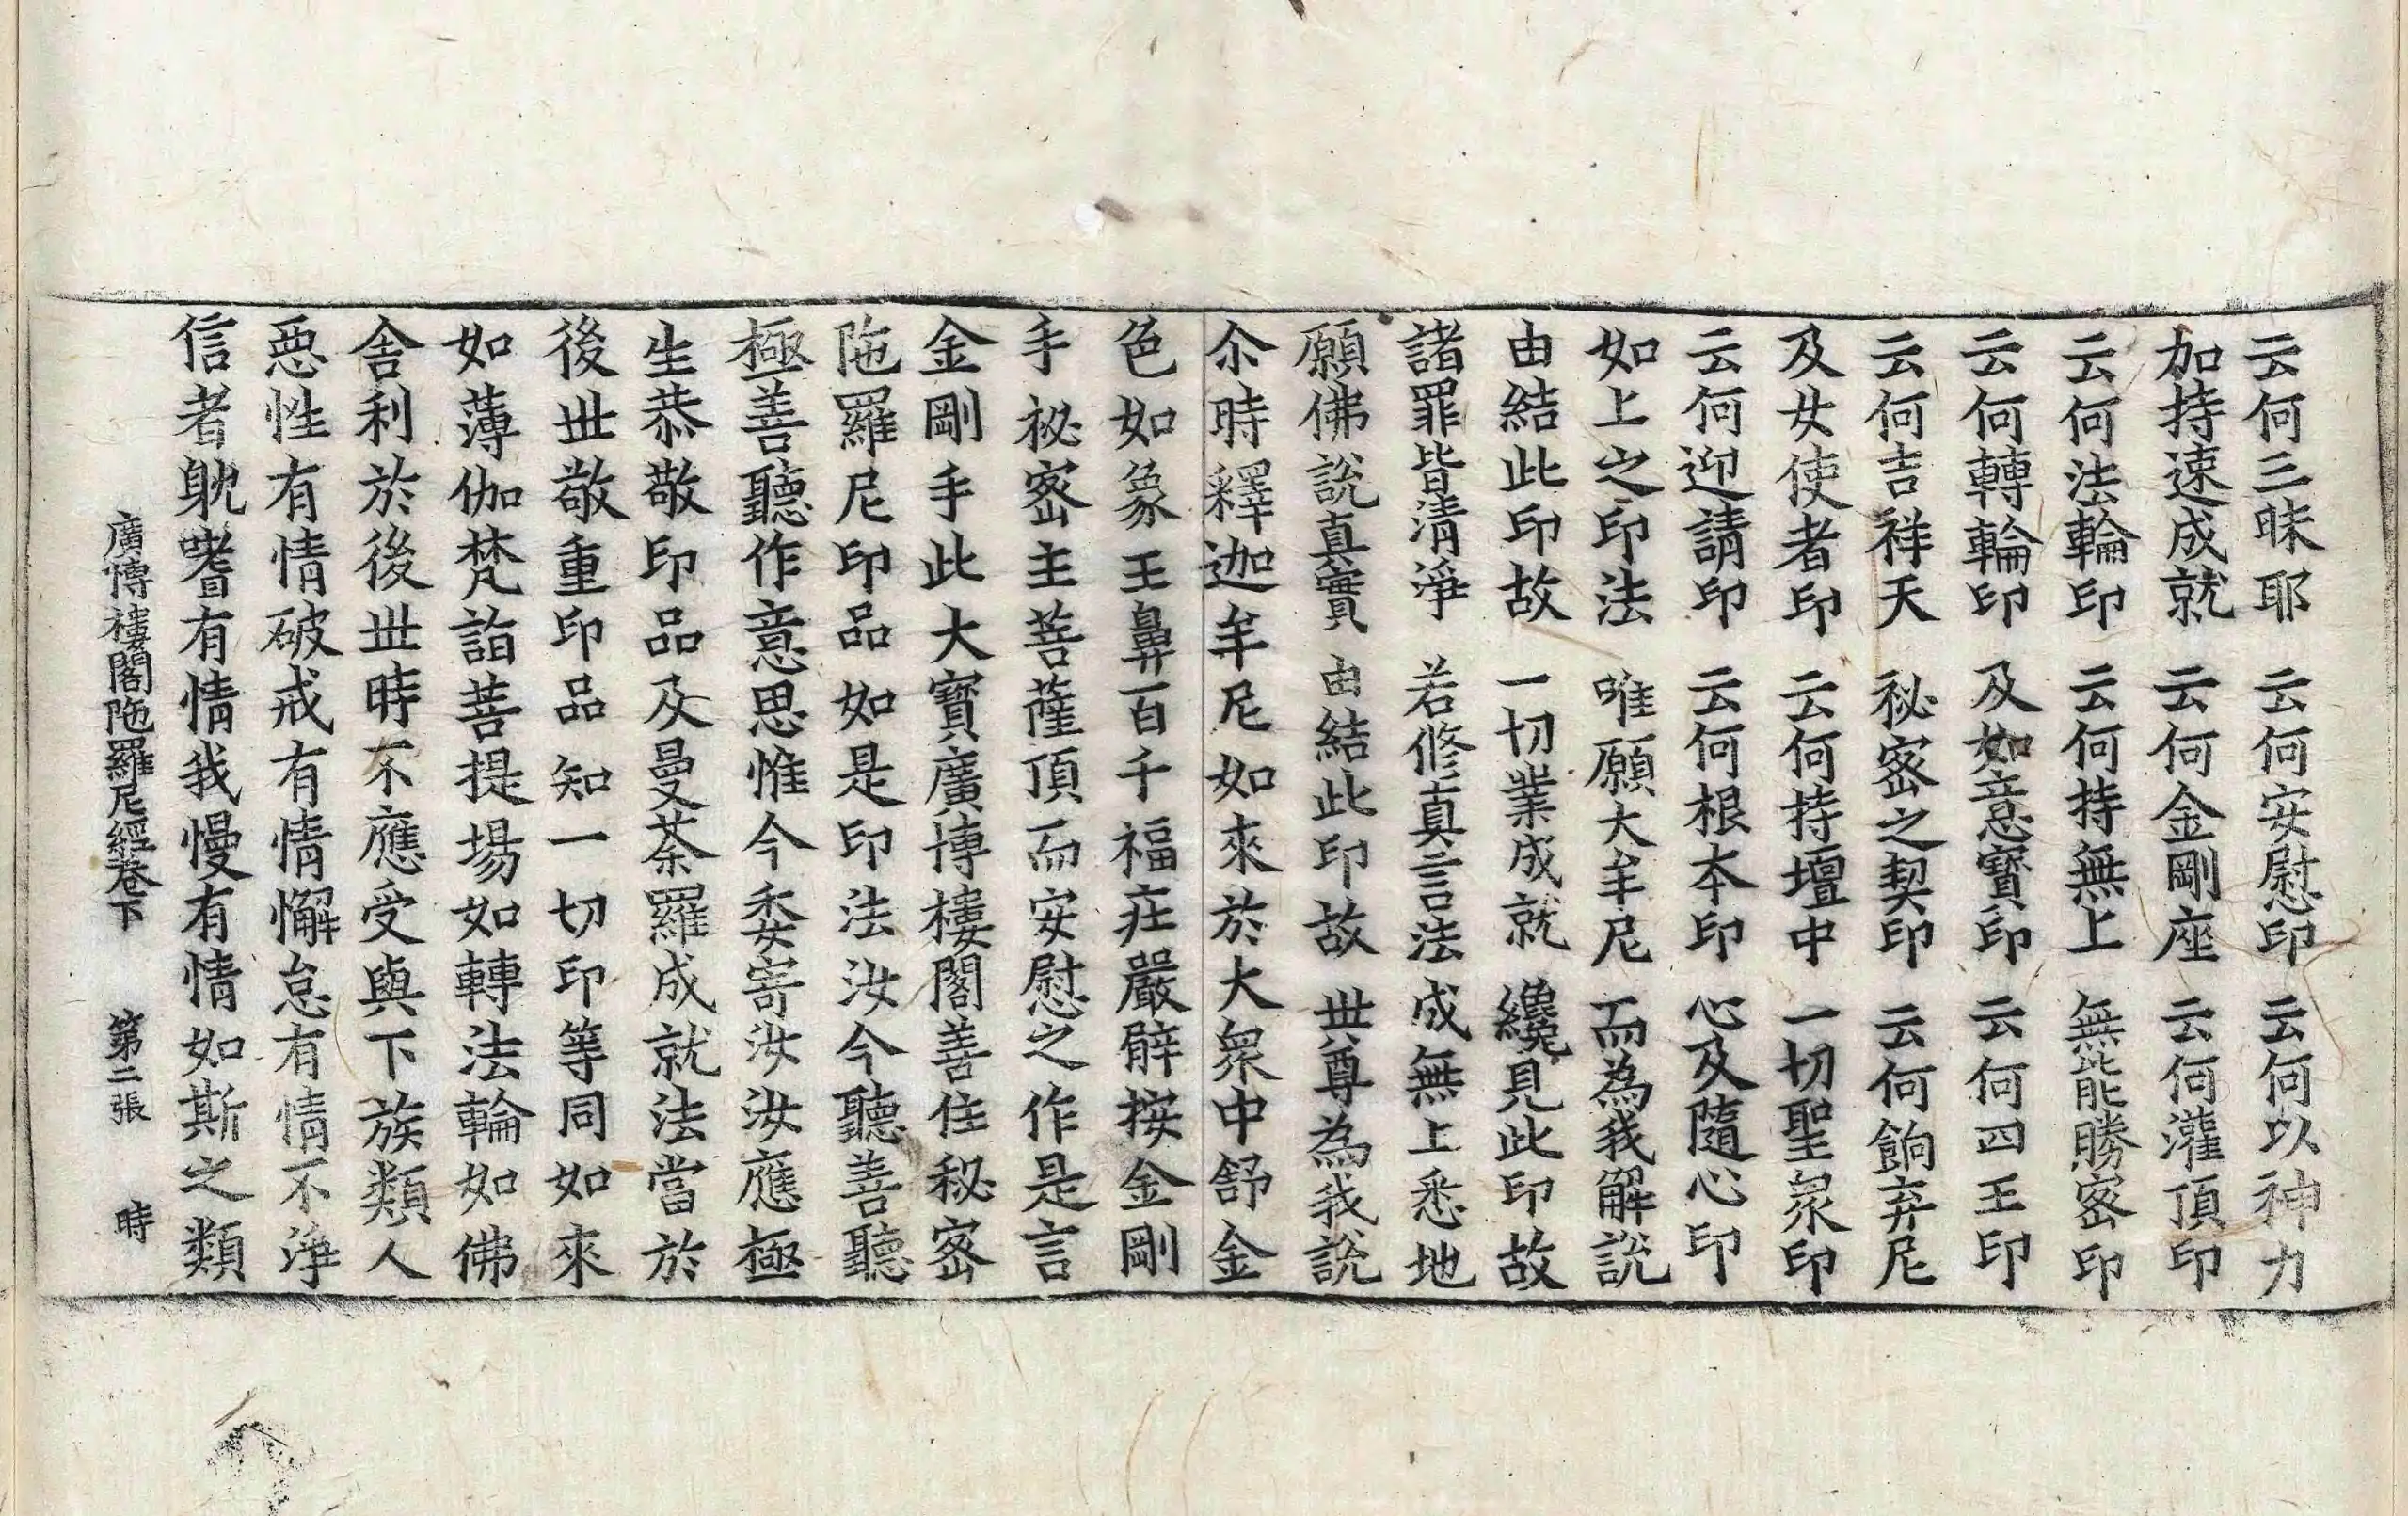 云何三昧耶　云何安慰印　云何以神力
加持速成就　云何金剛座　云何灌頂印
云何法輪印　云何持無上　無能勝密印
云何轉輪印　及如意寶印　云何四王印
云何吉祥天　祕密之契印　云何餉弃尼
及女使者印　云何持壇中　一切聖衆印
云何迎請印　云何根本印　心及隨心印
如上之印法　唯願大牟尼　而為我解說
由結此印故　一切業成就　纔見此印故
諸罪皆清淨　若修真言法　成無上悉地
願佛說真實　由結此印故　世尊為我說
尒時釋迦牟尼如來於大衆中舒金
色如象王鼻百千福庄嚴臂按金剛
手祕密主菩薩頂而安慰之作是言
金剛手此大寶廣博樓閣善住秘密
陁羅尼印品如是印法汝今聽善聽
極善聽作意思惟今委寄汝汝應極
生恭敬印品及曼荼羅成就法當於
後世敬重印品知一切印等同如來
如薄伽梵詣菩提場如轉法輪如佛
舍利於後世時不應受與下族類人
惡性有情破戒有情懈怠有情不淨
信者躭嗜有情我慢有情如斯之類
廣博樓閣陁羅尼經卷下　第二張　時